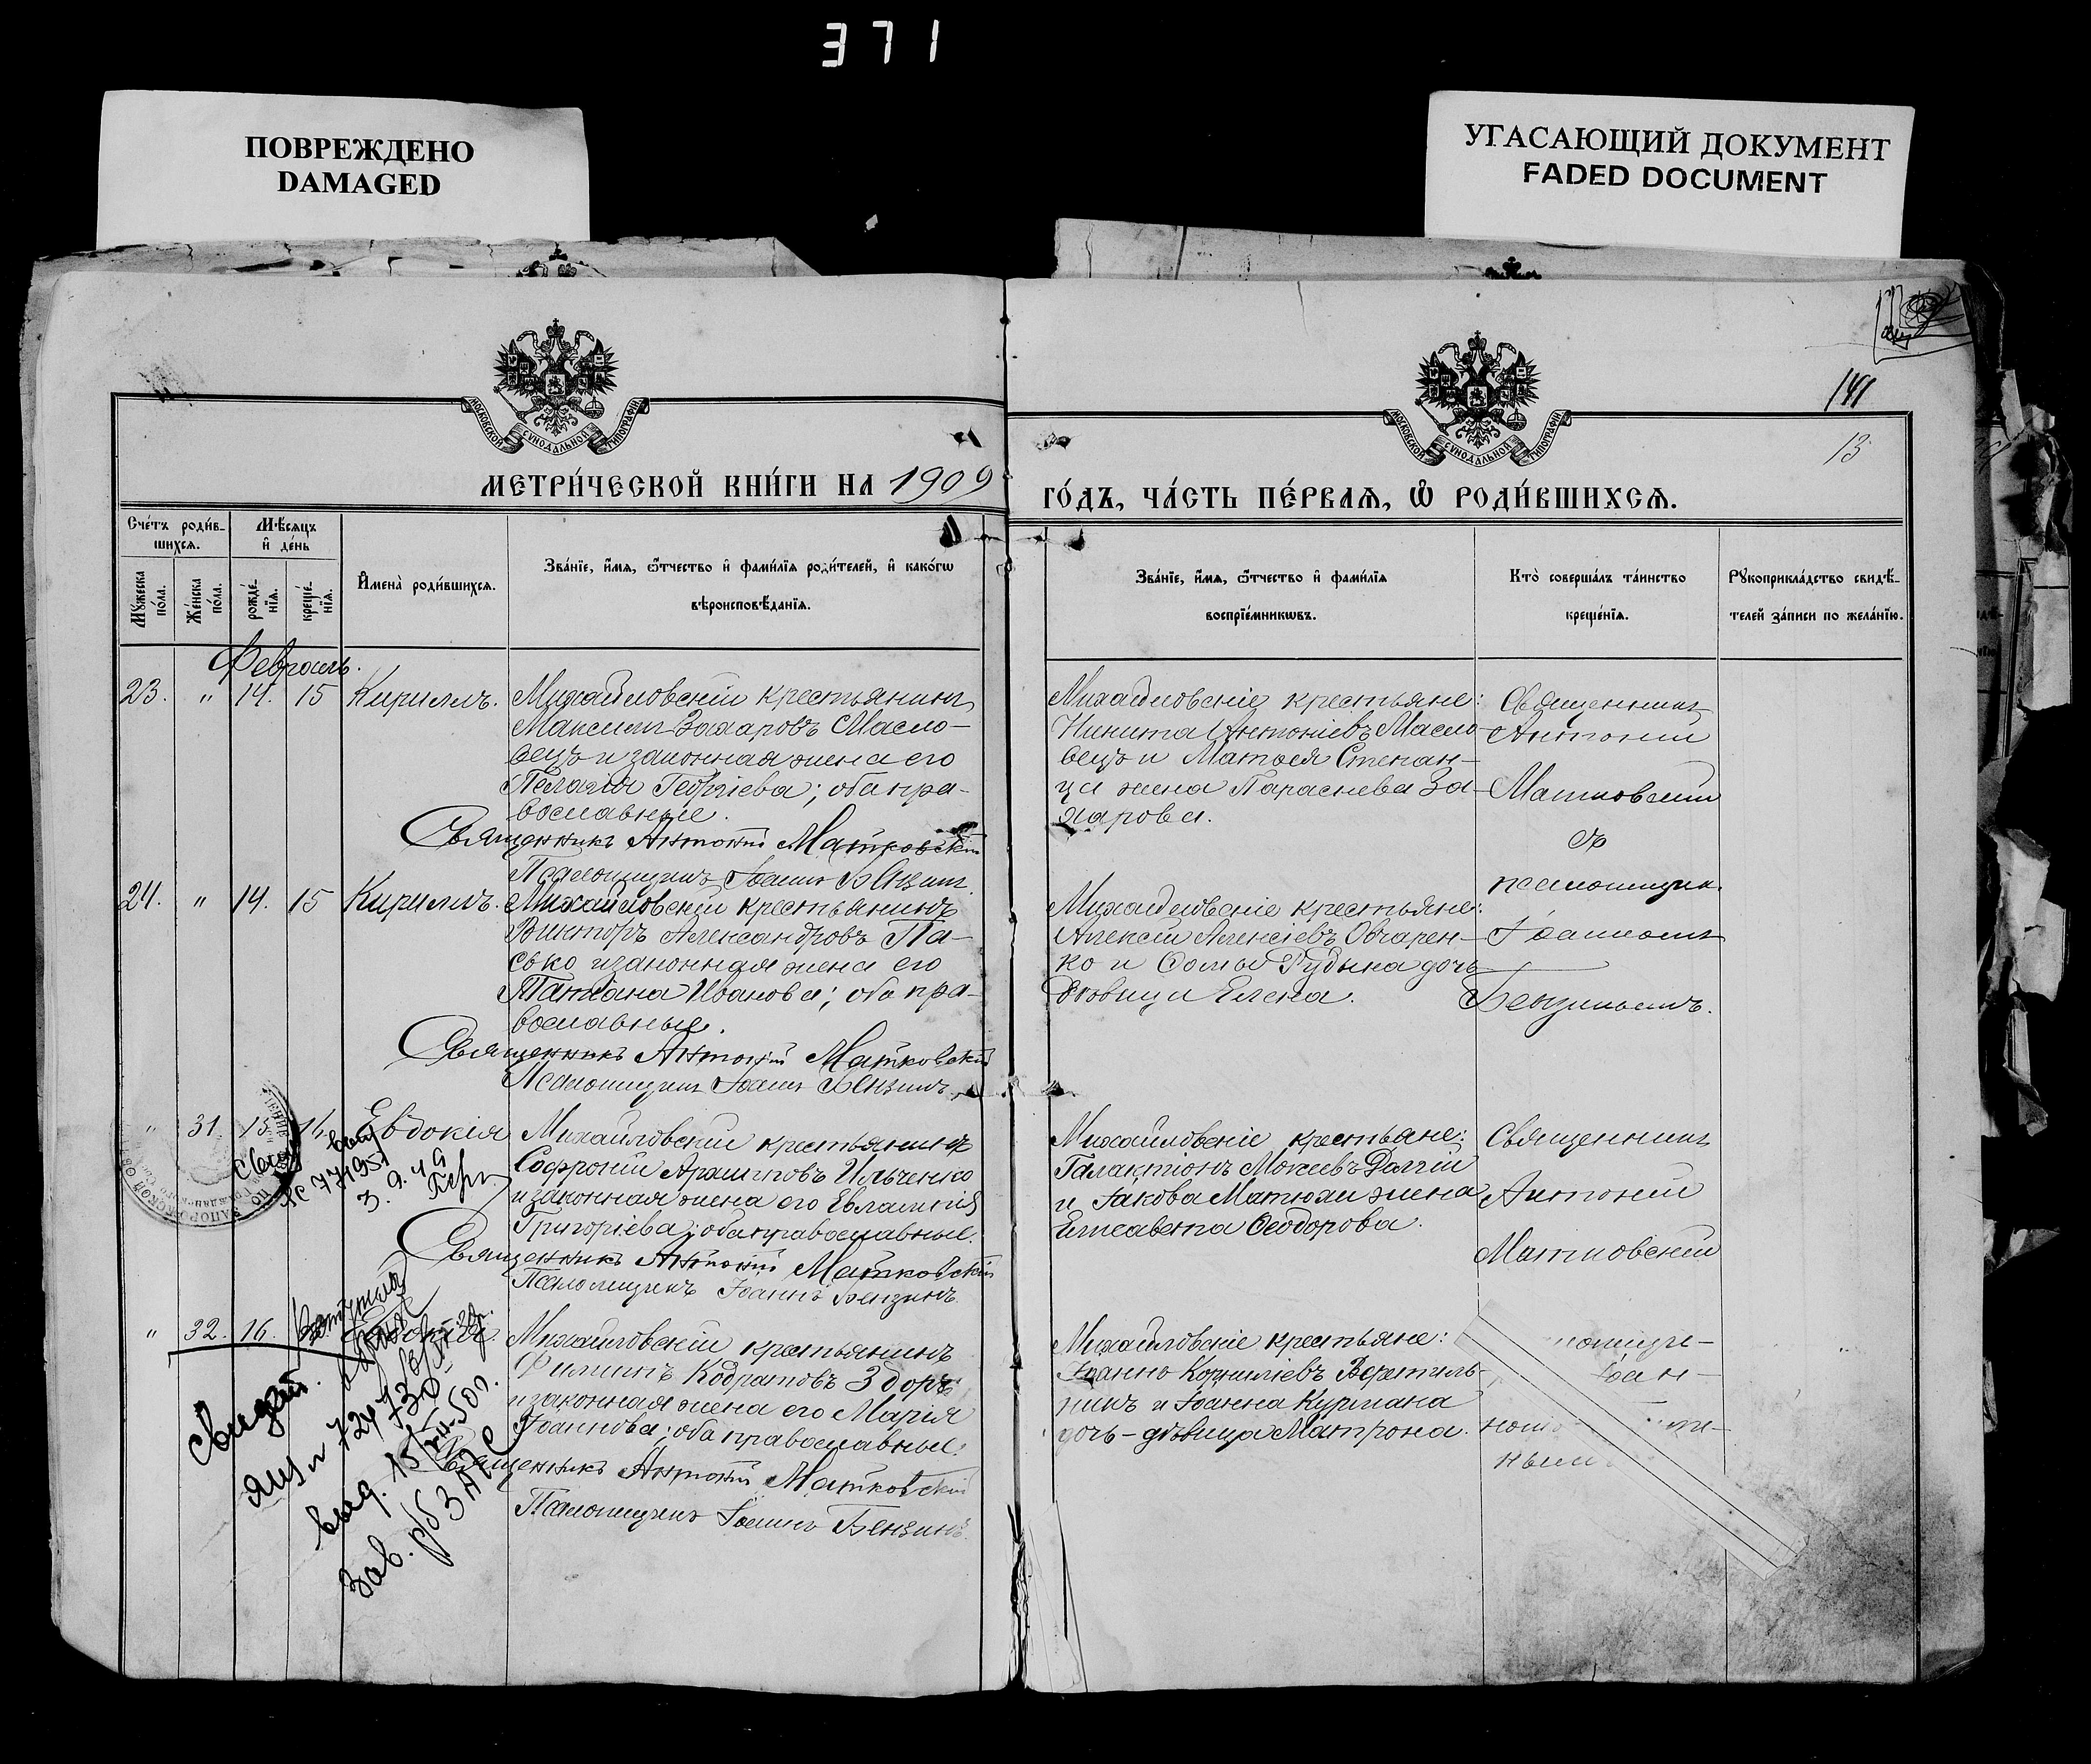 371
ПОВРЕЖДЕНО
DAMAGED
УГАСАЮЩИЙ ДОКУМЕНТ
FADED DOCUMENT
141
13
МОСКОВСКОЙ СѴНОДАЛЬНОЙ ТИПОГРАФІИ
МОСКОВСКОЙ СѴНОДАЛЬНОЙ ТИПОГРАФІИ
МЕТРИ́ЧЕСКОЙ КНИ́ГИ НА 1909
ГО́ДЪ, ЧА́СТЬ ПЕ́РВАѦ, Ѽ РОДИ́ВШИХСѦ.
Сче́тъ роди́в-
шихсѧ.
Мꙋжеска
по́ла.
Же́нска
по́ла.
Мѣ́сѧцъ
и҆ де́нь
рожде́-
нїѧ.
креще́-
нїѧ.
И҆мена̀ роди́вшихсѧ.
Зва́нїе, и҆́мѧ, ѻ҆́тчество и҆ фами́лїѧ роди́телей, и҆ како́гѡ
вѣроисповѣ́данїѧ.
Зва́нїе, и҆́мѧ, ѻ҆́тчество и҆ фами́лїѧ
воспрїе́мникѡвъ.
Кто̀ соверша́лъ та́инство
креще́нїѧ.
Рꙋкоприкла́дство свидѣ́-
телей за́писи по жела́нїю.
Февраль.
23. " 14. 15 Кириллъ.
Михайловскій крестьянинъ
Максимъ Захаровъ Масло-
вецъ и законная жена его
Пелагія Георгіева; оба пра-
вославные.
Священникъ Антоній Матковскій
Псаломщикъ Іоаннъ Бензинъ.
Михайловскіе крестьяне:
Никита Антоніевъ Масло-
вецъ и Матѳея Степан-
ца жена Параскева За-
харова.
Священникъ
Антоній
Матковскій
съ
псаломщик.
Іоанномъ
Бензинымъ.
24. " 14. 15 Кириллъ.
Михайловскій крестьянинъ
Викторъ Александровъ Па-
сько и законная жена его
Татіана Иванова; оба пра-
вославные.
Священникъ Антоній Матковскій
Псаломщикъ Іоаннъ Бензинъ.
Михайловскіе крестьяне:
Алексій Алексіевъ Овчарен-
ко и Ѳомы Рудыка дочь
дѣвица Елена.
" 31. 15 16. Евдокія
Михайловскій крестьянинъ
Софроній Архиповъ Ильченко
и законная жена его Евлампія
Григоріева; оба православные.
Священникъ Антоній Матковскій
Псаломщикъ Іоаннъ Бензинъ.
Михайловскіе крестьяне:
Галактіонъ Мокіевъ Долгій
и Іакова Матюхи жена
Елисавета Ѳеодорова.
Священникъ
Антоній
Матковскій
3.9.49
" 32. 16.
Михайловскій крестьянинъ
Филиппъ Кодратовъ Здоръ
и законная жена его Марія
Іоаннова; оба православные.
Священникъ Антоній Матковскій
Псаломщикъ Іоаннъ Бензинъ.
Михайловскіе крестьяне:
Іоаннъ Корниліевъ Веретель-
никъ и Іоанна Курмана
дочь - дѣвица Матрона.
выд. 50 г.
Зав. р/б ЗАГС